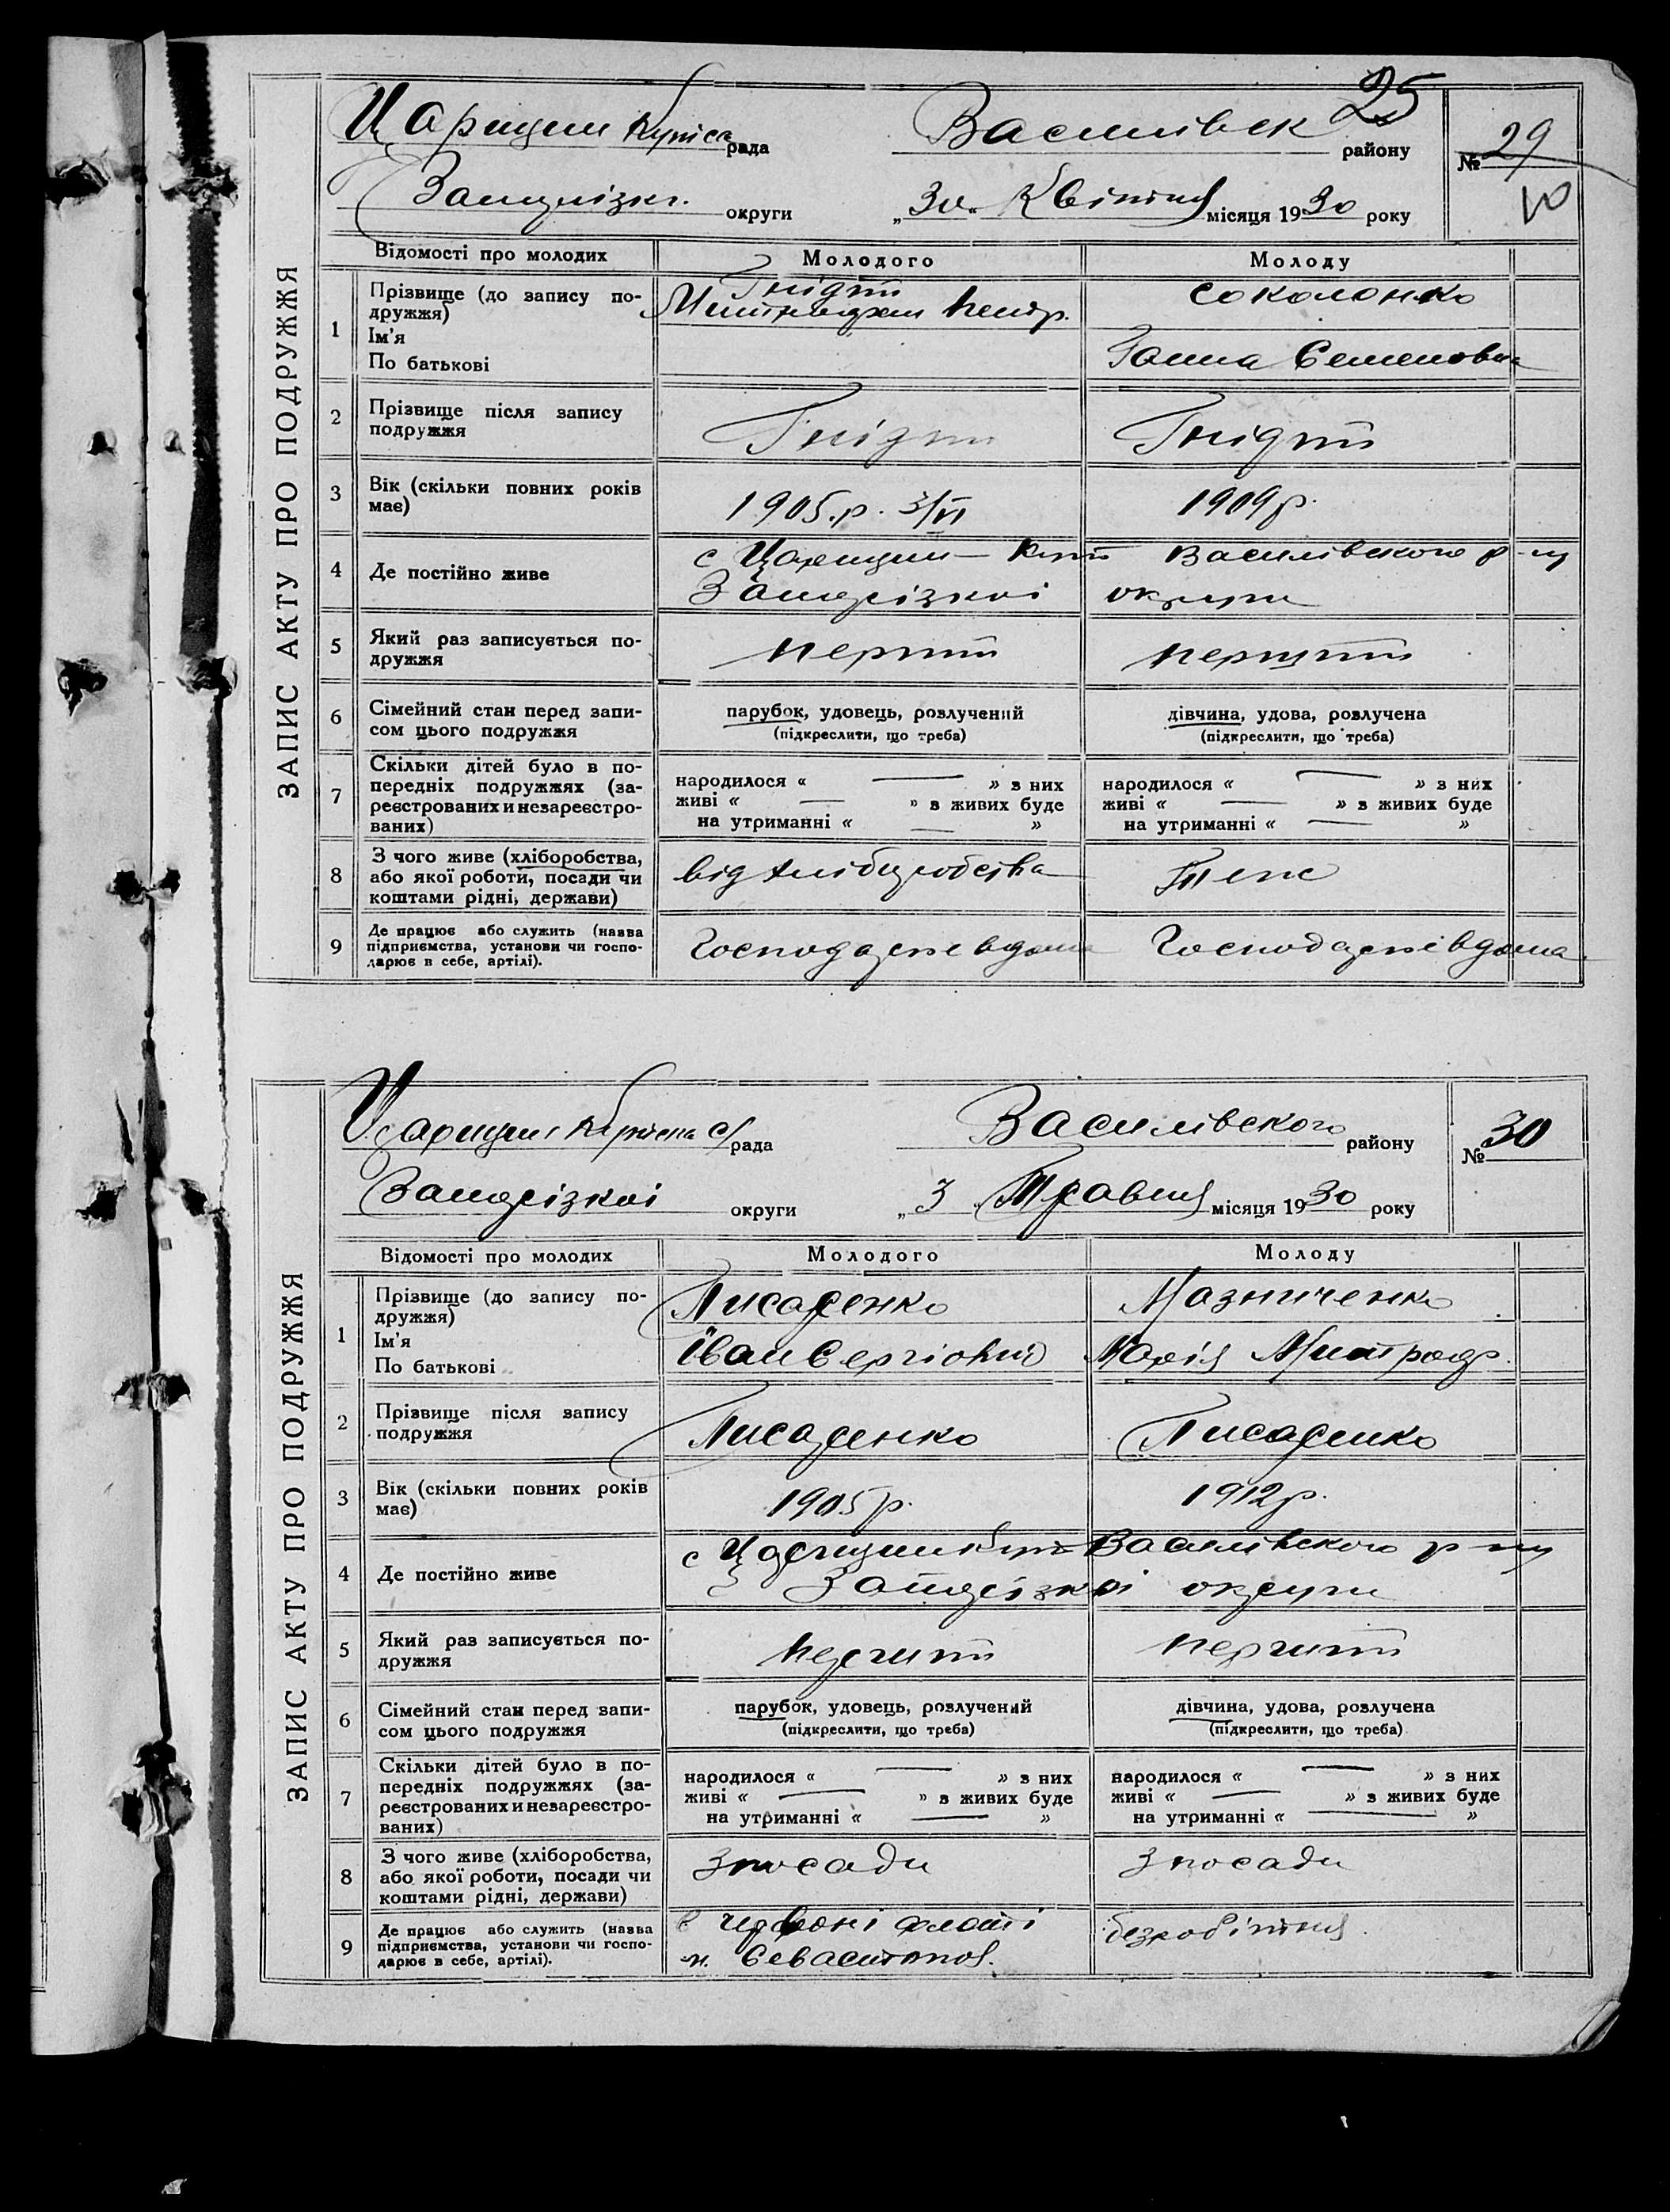 25
Царицин Кутська рада Василівськ району № 29
10
Запоріжк. округи „30" Квітня місяця 1930 року
ЗАПИС АКТУ ПРО ПОДРУЖЖЯ
Відомості про молодих Молодого Молоду
1 Прізвище (до запису подружжя) Гнідий Соколенко
Ім'я
По батькові Митрофан Ганна Семеновна
2 Прізвище після запису подружжя Гнідий Гнідий
3 Вік (скільки повних років має) 1905.р. 3/VI 1909р.
4 Де постійно живе с Царицин-Кут Василівського р-ну
Запорізкої округи
5 Який раз записується подружжя перший перший
6 Сімейний стан перед записом цього подружжя парубок, удовець, розлучений дівчина, удова, розлучена
(підкреслити, що треба) (підкреслити, що треба)
7 Скільки дітей було в попередніх подружжях (зареєстрованих и незареєстрованих) народилося « — » з них народилося « — » з них
живі « — » з живих буде живі « — » з живих буде
на утриманні « — » на утриманні « — »
8 З чого живе (хліборобства, або якої роботи, посади чи коштами рідні, держави) від хліборобства Теж
9 Де працює або служить (назва підприємства, установи чи господарює в себе, артілі). Господарює вдома Господарює вдома
Царицин Кутська с/рада Василівского району № 30
Запорізкої округи „3 Травня місяця 1930 року
ЗАПИС АКТУ ПРО ПОДРУЖЖЯ
Відомості про молодих Молодого Молоду
1 Прізвище (до запису подружжя) Писаренко Мазниченко
Ім'я
По батькові Іван Сергіович Марія Митрофр.
2 Прізвище після запису подружжя Писаренко Писаренко
3 Вік (скільки повних років має) 1905р. 1912р.
4 Де постійно живе с Царицин Кут Василівского р-ну
Запорізкої округи
5 Який раз записується подружжя перший перший
6 Сімейний стан перед записом цього подружжя парубок, удовець, розлучений дівчина, удова, розлучена
(підкреслити, що треба) (підкреслити, що треба)
7 Скільки дітей було в попередніх подружжях (зареєстрованих и незареєстрованих) народилося « — » з них народилося « — » з них
живі « — » з живих буде живі « — » з живих буде
на утриманні « — » на утриманні « — »
8 З чого живе (хліборобства, або якої роботи, посади чи коштами рідні, держави) З посади З посади
9 Де працює або служить (назва підприємства, установи чи господарює в себе, артілі). в червоні флоті безробітня
м. Севастопол.